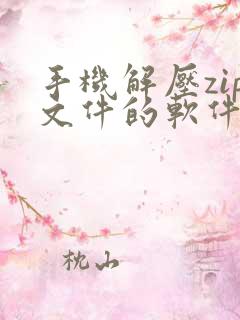 手機解壓zip
文件的軟件
枕山